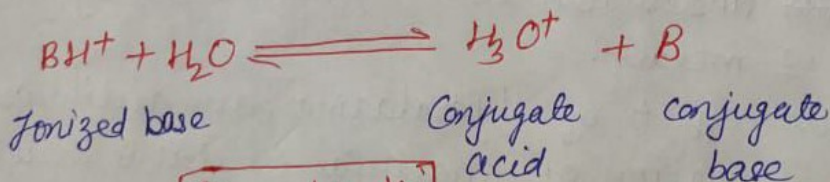 BH⁺ + H₂O ⇌ H₃O⁺ + B
Ionized base Conjugate conjugate
acid base